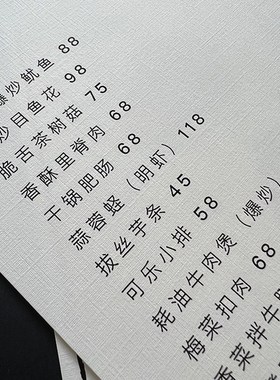 爆炒鱿鱼 88
炒目鱼花 98
脆舌茶树菇 75
香酥里脊肉 68
干锅肥肠 68
蒜蓉蛏（明虾）118
拔丝芋条 45
可乐小排 58
耗油牛肉煲（爆炒）
梅菜扣肉 68
香菜拌牛